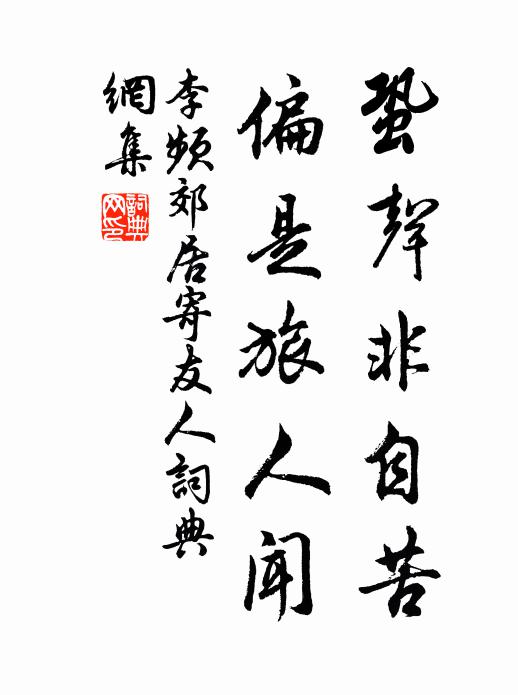 蛩聲非自苦
偏是旅人聞
李頻郊居寄友人詞典
網集
詞典
网印